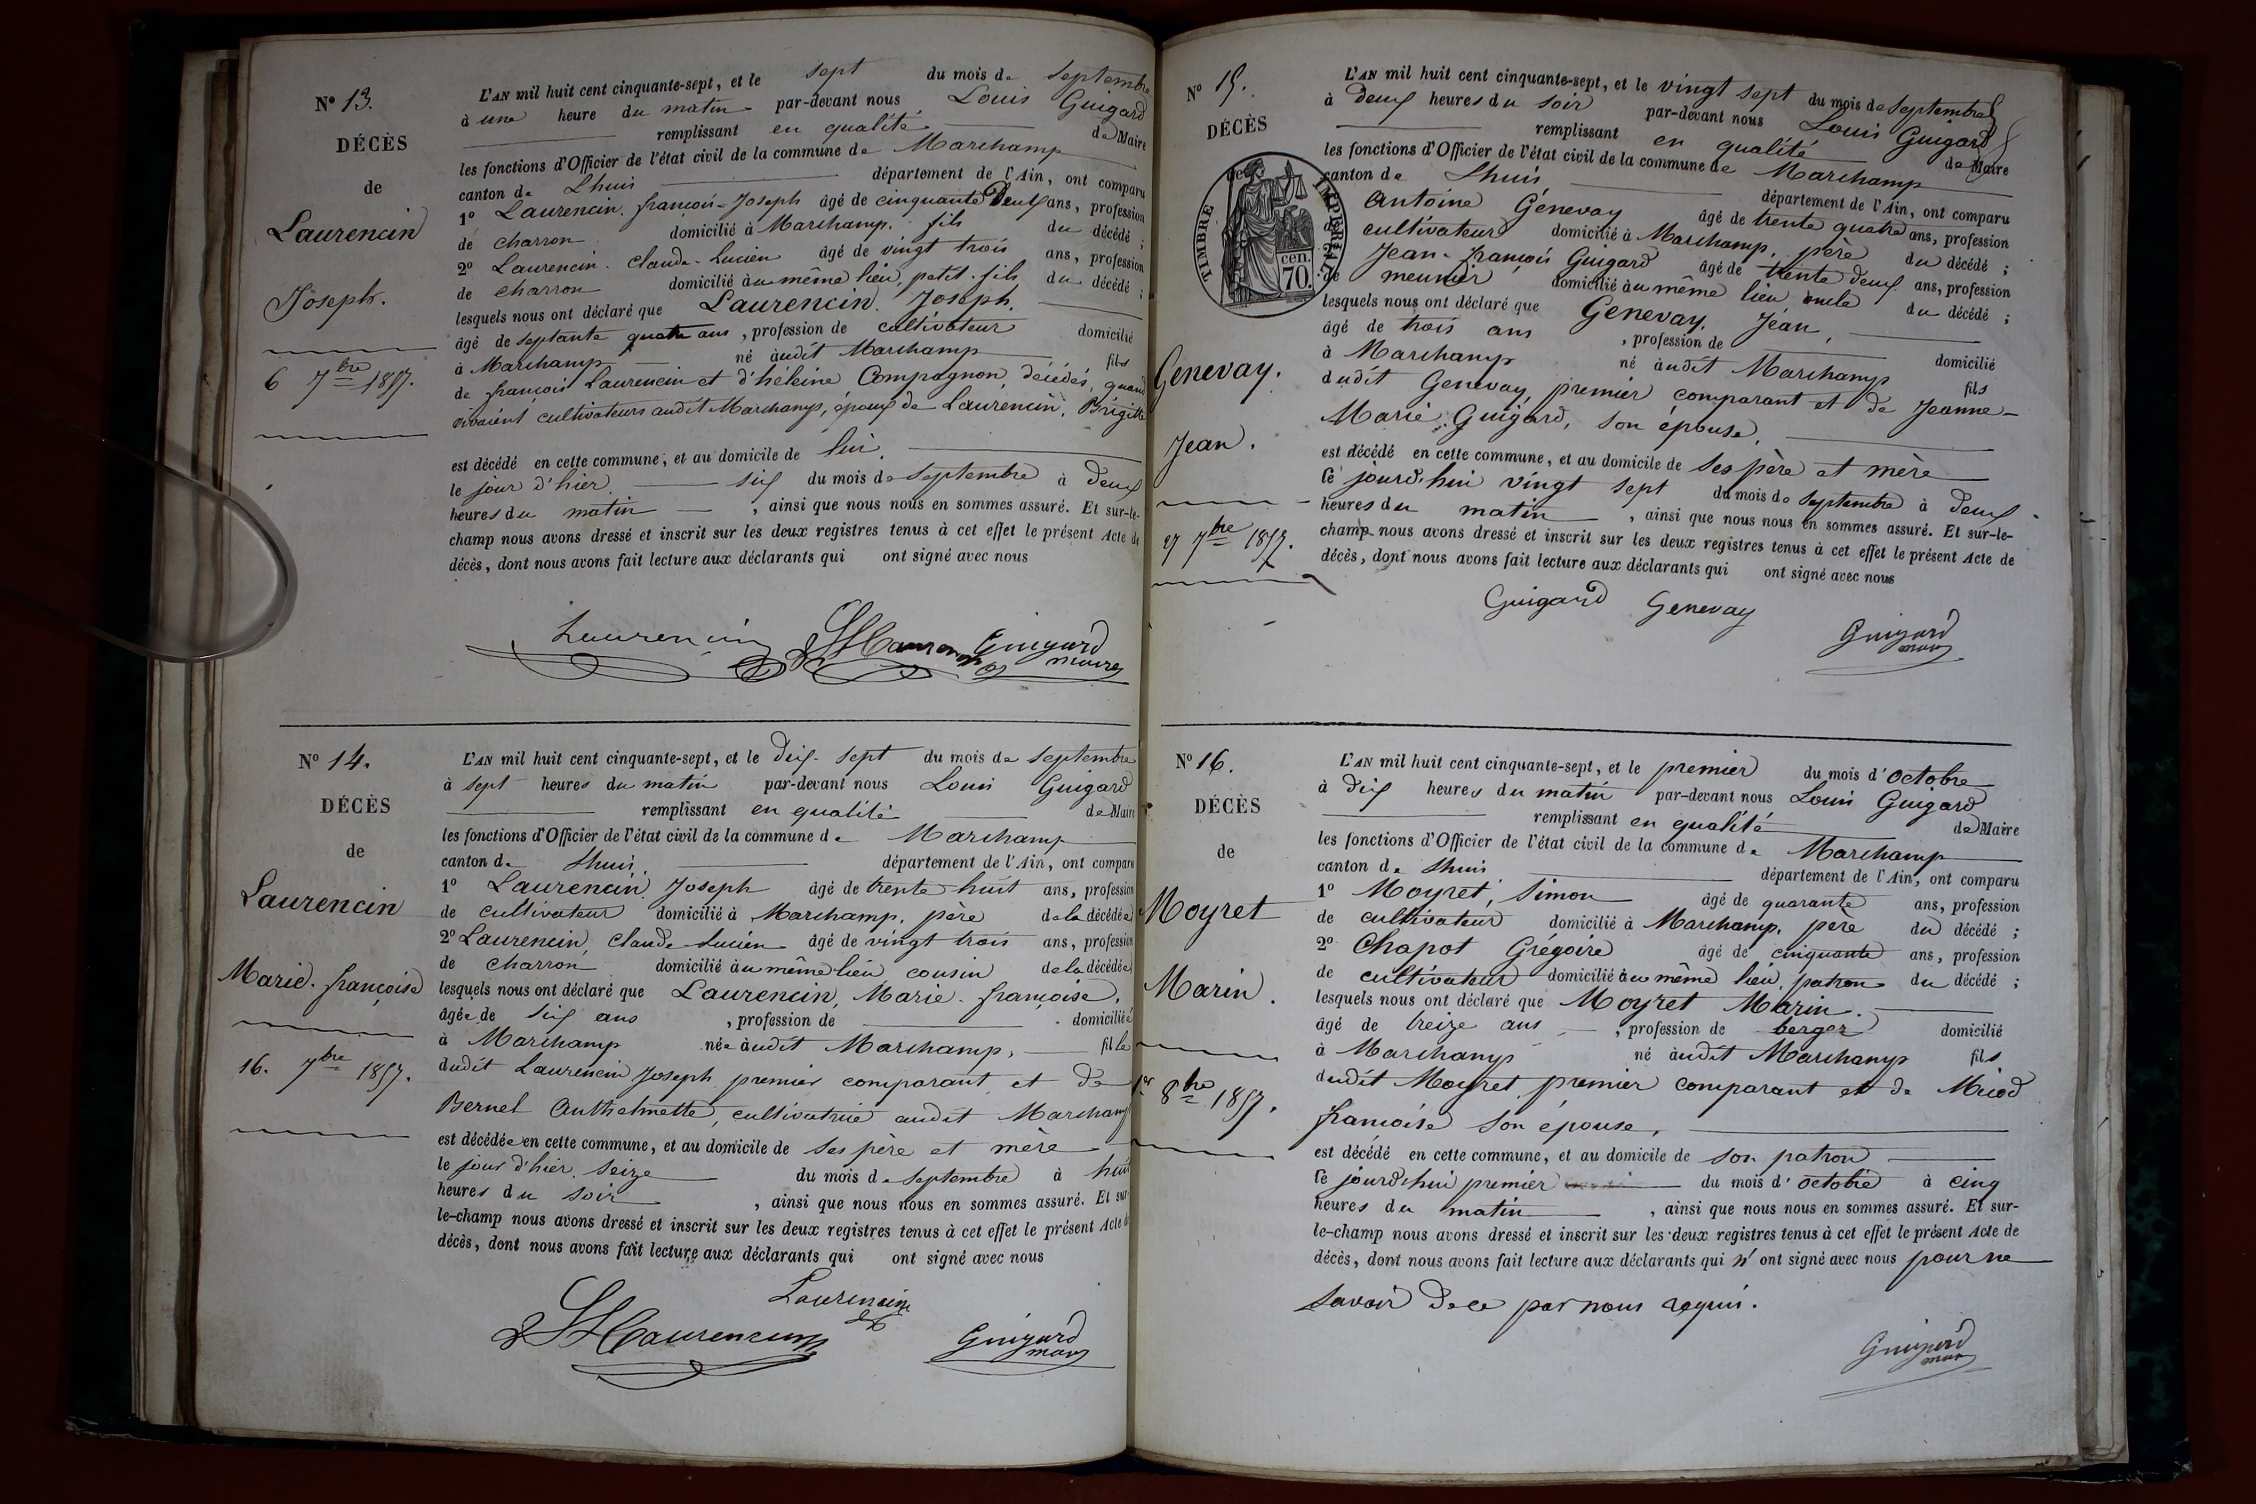 N° 13.
DÉCÈS
de
Laurencin
Joseph.
6 7bre 1857.
L'AN mil huit cent cinquante-sept, et le sept du mois de septembre
à une heure du matin par-devant nous Louis Guigard
remplissant en qualité de Maire
les fonctions d'Officier de l'état civil de la commune de Marchamp
canton de Lhuis département de l'Ain, ont comparu
1° Laurencin. françois-Joseph âgé de cinquante Deux ans, profession
de charron domicilié à Marchamp. fils du décédé ;
2° Laurencin. Claude-Lucien âgé de vingt trois ans, profession
de charron domicilié au même lieu, petit-fils du décédé ;
lesquels nous ont déclaré que Laurencin. Joseph.
âgé de septante quatre ans, profession de cultivateur domicilié
à Marchamp né audit Marchamp fils
de françois Laurencin et d'héleine Compagnon, décédés, quand
vivaient cultivateurs audit Marchamp, époux de Laurencin, Brigitte
est décédé en cette commune, et au domicile de lui.
le jour d'hier six du mois de septembre à deux
heures du matin, ainsi que nous nous en sommes assuré. Et sur-le-
champ nous avons dressé et inscrit sur les deux registres tenus à cet effet le présent Acte de
décès, dont nous avons fait lecture aux déclarants qui ont signé avec nous
Laurencin Laurencin Guigard
maire
N° 14.
DÉCÈS
de
Laurencin
Marie-françoise
16. 7bre 1857.
L'AN mil huit cent cinquante-sept, et le dix-sept du mois de septembre
à sept heures du matin par-devant nous Louis Guigard
remplissant en qualité de Maire
les fonctions d'Officier de l'état civil de la commune de Marchamp
canton de Lhuis, département de l'Ain, ont comparu
1° Laurencin Joseph âgé de trente-huit ans, profession
de cultivateur domicilié à Marchamp, père de la décédée
2° Laurencin Claude-Lucien âgé de vingt trois ans, profession
de charron domicilié au même lieu cousin de la décédée
lesquels nous ont déclaré que Laurencin, Marie-françoise,
âgée de six ans, profession de domiciliée
à Marchamp née audit Marchamp, fille
dudit Laurencin Joseph premier comparant et de
Bernel Anthelmette, cultivatrice audit Marchamp
est décédée en cette commune, et au domicile de ses père et mère
le jour d'hier seize du mois de septembre à huit
heures du soir, ainsi que nous nous en sommes assuré. Et sur-
le-champ nous avons dressé et inscrit sur les deux registres tenus à cet effet le présent Acte de
décès, dont nous avons fait lecture aux déclarants qui ont signé avec nous
Laurencin
Laurencin Guigard
maire
N° 15.
DÉCÈS
TIMBRE IMPÉRIAL
70 cen.
Genevay.
Jean.
27 7bre 1857.
L'AN mil huit cent cinquante-sept, et le vingt sept du mois de septembre
à deux heures du soir par-devant nous Louis Guigard
remplissant en qualité de Maire
les fonctions d'Officier de l'état civil de la commune de Marchamp
canton de Lhuis département de l'Ain, ont comparu
Antoine Genevay âgé de trente quatre ans, profession
de cultivateur domicilié à Marchamp, père du décédé ;
Jean-françois Guigard âgé de trente deux ans, profession
de meunier domicilié au même lieu oncle du décédé ;
lesquels nous ont déclaré que Genevay, Jean,
âgé de trois ans, profession de domicilié
à Marchamp né audit Marchamp fils
dudit Genevay premier comparant et de Jeanne-
Marie Guigard, son épouse.
est décédé en cette commune, et au domicile de ses père et mère
le jourd'hui vingt sept du mois de septembre à deux
heures du matin, ainsi que nous nous en sommes assuré. Et sur-le-
champ nous avons dressé et inscrit sur les deux registres tenus à cet effet le présent Acte de
décès, dont nous avons fait lecture aux déclarants qui ont signé avec nous
Guigard Genevay
Guigard
maire
N° 16.
DÉCÈS
de
Moyret
Marin.
1er 8bre 1857.
L'AN mil huit cent cinquante-sept, et le premier du mois d'octobre
à dix heures du matin par-devant nous Louis Guigard
remplissant en qualité de Maire
les fonctions d'Officier de l'état civil de la commune de Marchamp
canton de Lhuis département de l'Ain, ont comparu
1° Moyret, Simon âgé de quarante ans, profession
de cultivateur domicilié à Marchamp, père du décédé ;
2° Chapot Grégoire âgé de cinquante ans, profession
de cultivateur domicilié au même lieu, patron du décédé ;
lesquels nous ont déclaré que Moyret Marin.
âgé de treize ans, profession de berger domicilié
à Marchamp né audit Marchamp fils
dudit Moyret premier comparant et de Miod
françoise son épouse,
est décédé en cette commune, et au domicile de son patron
le jourd'hui premier du mois d'octobre à cinq
heures du matin, ainsi que nous nous en sommes assuré. Et sur-
le-champ nous avons dressé et inscrit sur les deux registres tenus à cet effet le présent Acte de
décès, dont nous avons fait lecture aux déclarants qui n'ont signé avec nous pour ne
savoir de ce par nous requis.
Guigard
maire